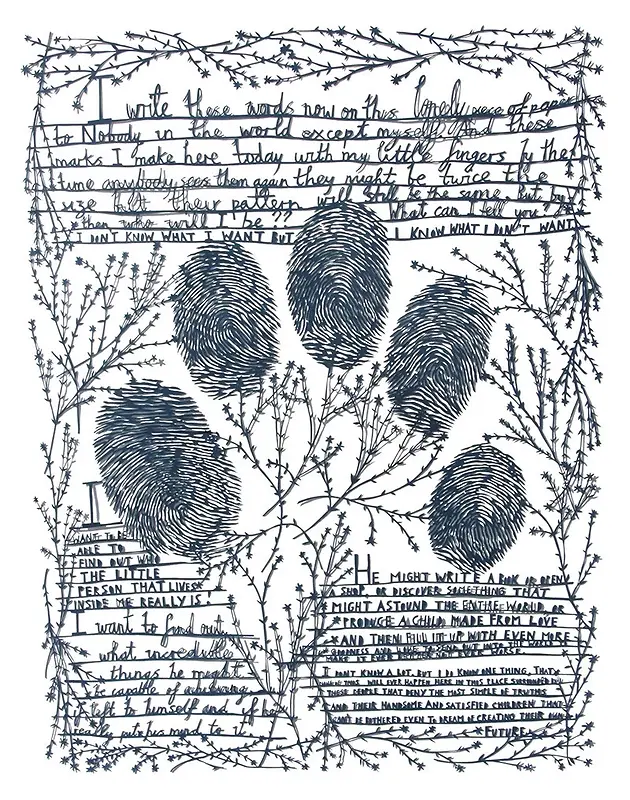 I write these words now on this lonely piece of paper
to Nobody in the world except myself. And these
marks I make here today with my little fingers by the
time anybody sees them again they might be twice the
size but their pattern will still be the same. But by
then who will I be?? What can I tell you?
I DONT KNOW WHAT I WANT BUT I KNOW WHAT I DON'T WANT
I
WANT TO BE
ABLE TO
FIND OUT WHO
THE LITTLE
PERSON THAT LIVES
INSIDE ME REALLY IS!
I want to find out
what incredible
things he might
be capable of achieving
if left to himself and if he
really puts his mind to it.
HE MIGHT WRITE A BOOK OR OPEN
A SHOP, OR DISCOVER SOMETHING THAT
MIGHT ASTOUND THE ENTIRE WORLD, OR
PRODUCE A CHILD MADE FROM LOVE
AND THEN FILL IT UP WITH EVEN MORE
GOODNESS AND LOVE TO SEND OUT INTO THE WORLD
MAKE IT EVEN BETTER NOT EVER WORSE
I DONT KNOW A LOT. BUT I DO KNOW ONE THING, THAT
THIS WILL EVER HAPPEN HERE IN THIS PLACE SURROUNDED BY
THESE PEOPLE THAT DENY THE MOST SIMPLE OF TRUTHS
AND THEIR HANDSOME AND SATISFIED CHILDREN THAT
CAN'T BE BOTHERED EVEN TO DREAM OF CREATING THEIR OWN
FUTURE